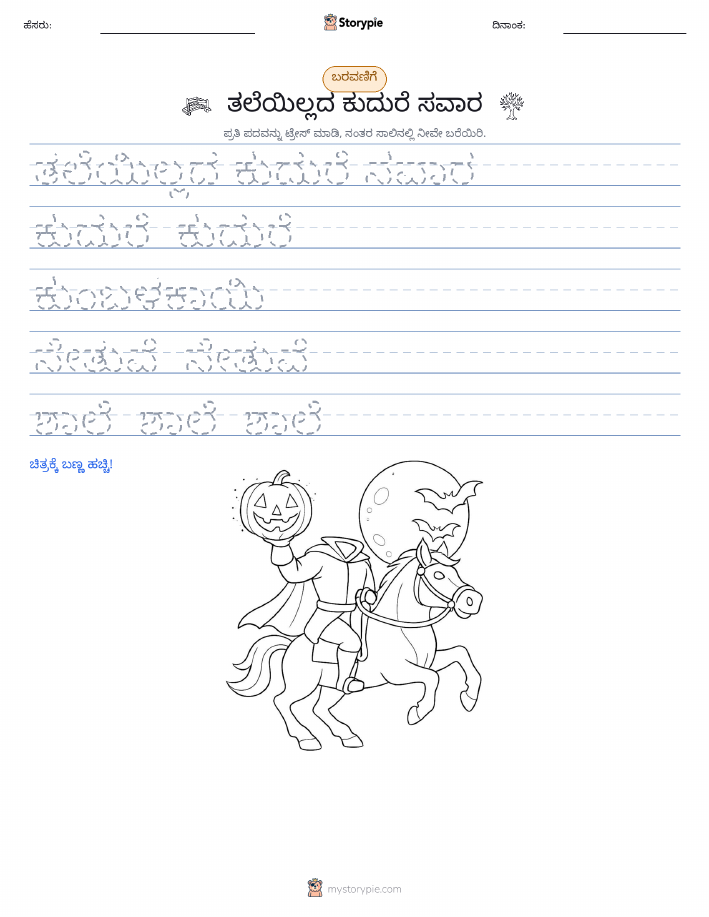 ಹೆಸರು:
Storypie
ದಿನಾಂಕ:
ಬರವಣಿಗೆ
ತಲೆಯಿಲ್ಲದ ಕುದುರೆ ಸವಾರ
ಪ್ರತಿ ಪದವನ್ನು ಟ್ರೇಸ್ ಮಾಡಿ, ನಂತರ ಸಾಲಿನಲ್ಲಿ ನೀವೇ ಬರೆಯಿರಿ.
ತಲೆಯಿಲ್ಲದ ಕುದುರೆ ಸವಾರ
ಕುದುರೆ ಕುದುರೆ
ಕುಂಬಳಕಾಯಿ
ಸೇತುವೆ ಸೇತುವೆ
ಶಾಲೆ ಶಾಲೆ ಶಾಲೆ
ಚಿತ್ರಕ್ಕೆ ಬಣ್ಣ ಹಚ್ಚಿ!
mystorypie.com